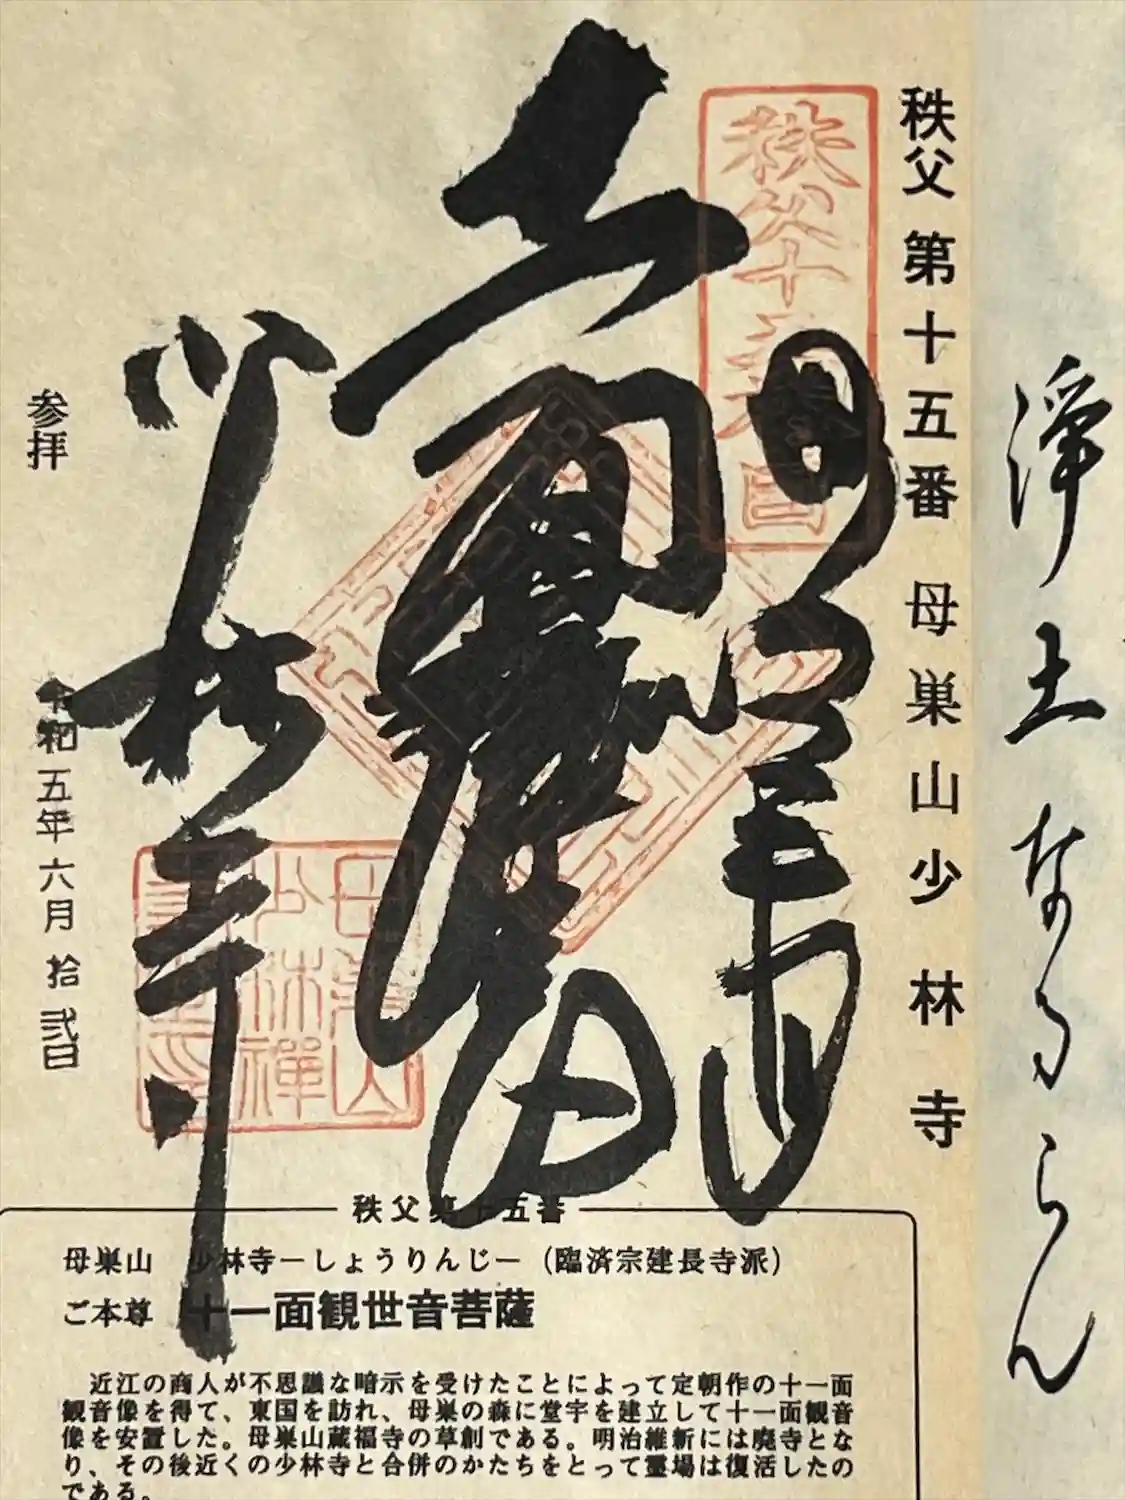 浄土なるらん
秩父第十五番 母巣山少林寺
秩父十五番
少林寺
参拝 令和五年六月拾弐日
秩父第十五番
母巣山 少林寺－しょうりんじ－（臨済宗建長寺派）
ご本尊 十一面観世音菩薩
近江の商人が不思議な暗示を受けたことによって定朝作の十一面
観音像を得て、東国を訪れ、母巣の森に堂宇を建立して十一面観音
像を安置した。母巣山蔵福寺の草創である。明治維新には廃寺とな
り、その後近くの少林寺と合併のかたちをとって霊場は復活したの
である。